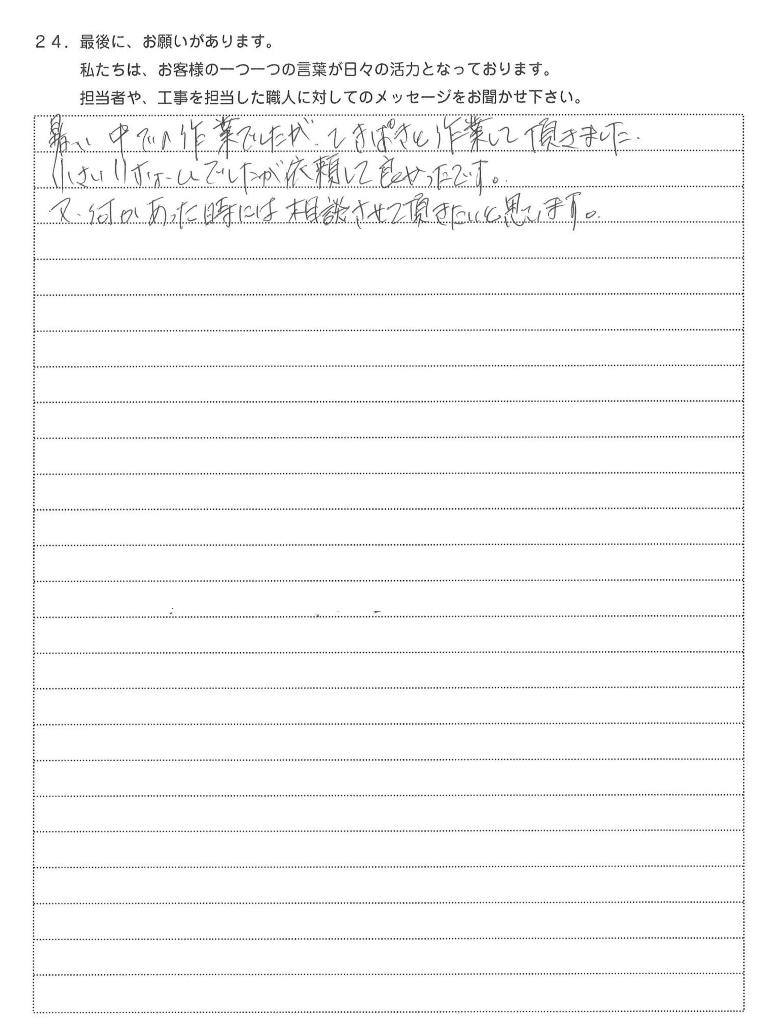 ２４．最後に、お願いがあります。
私たちは、お客様の一つ一つの言葉が日々の活力となっております。
担当者や、工事を担当した職人に対してのメッセージをお聞かせ下さい。
暑い中での作業でしたが、てきぱきと作業して頂きました.
小さいリホームでしたが依頼して良かったです。
又、何かあった時には相談させて頂きたいと思います。